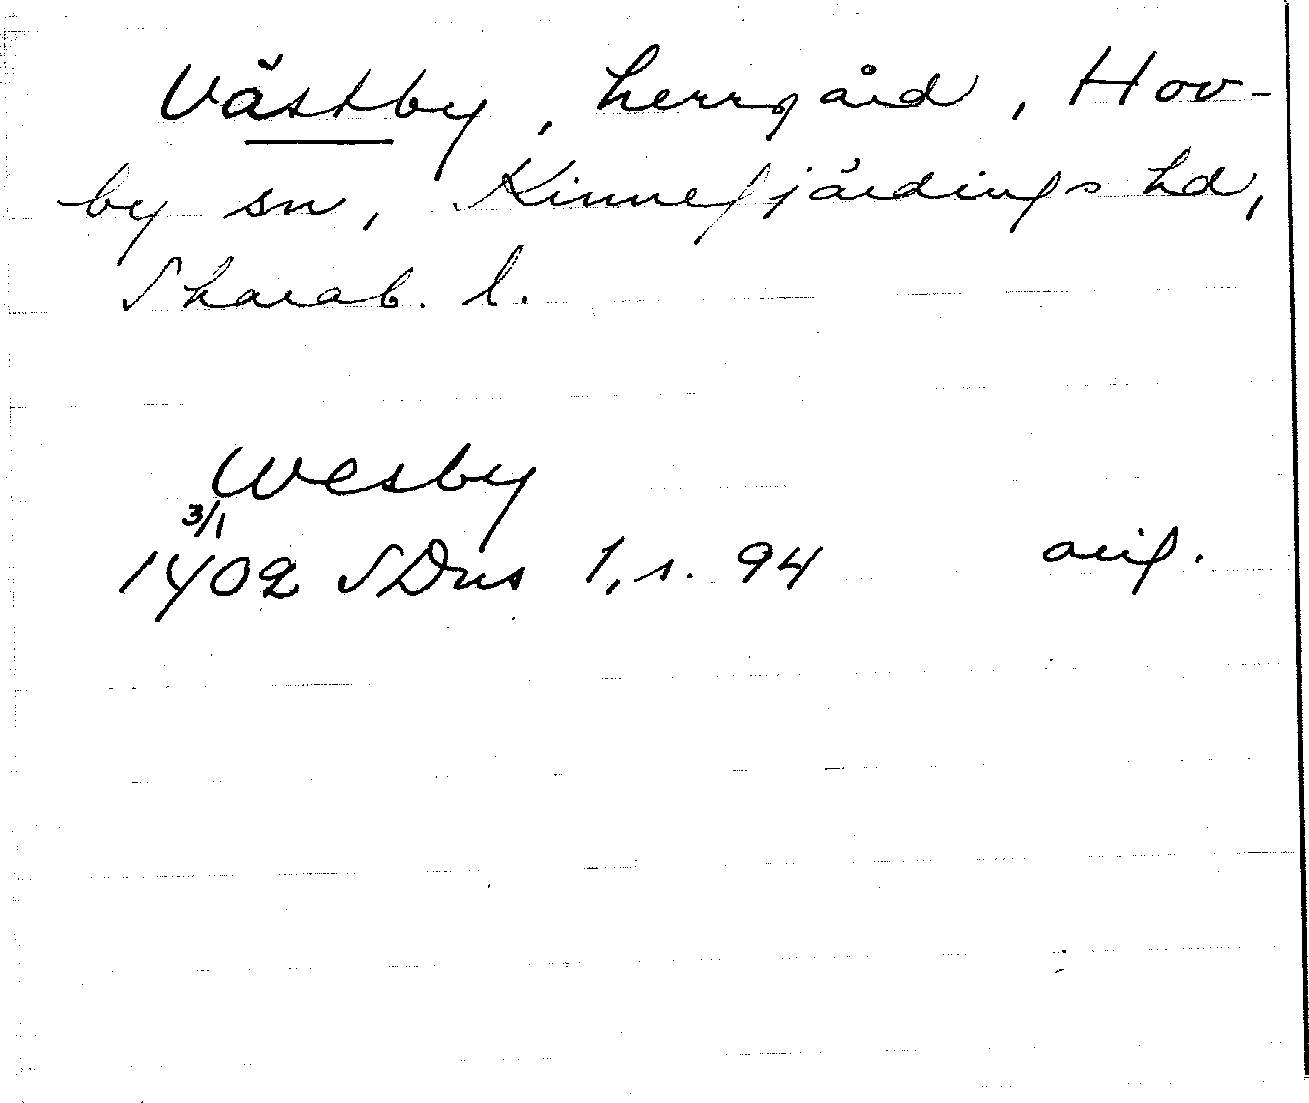 Västby, herrgård, Hov-
by sn, Kinnefjärdings hd,
Skarab. l.
Wesby
3/1
1402 SDns 1, s. 94 orig.